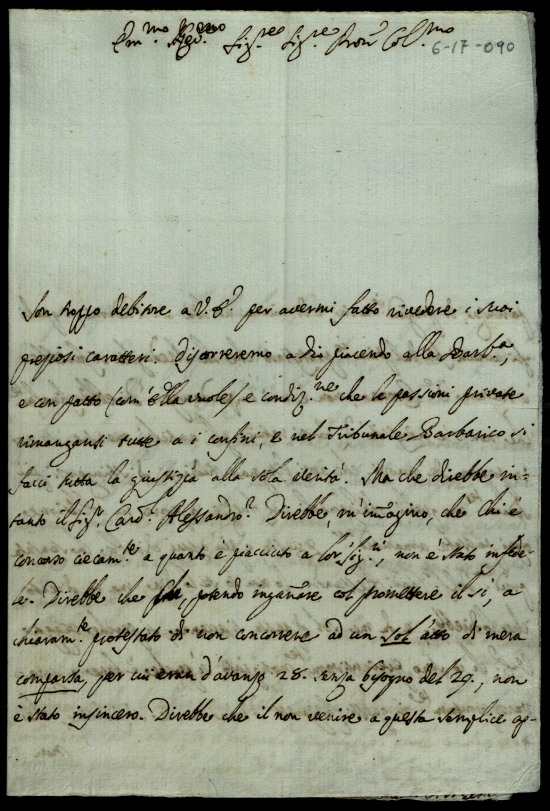 Em.mo Rev.mo Sig.re Sig.re Pron Col.mo
6-17-090
Son troppo debitore a V. E. per avermi fatto rivedere i suoi
preziosi caratteri. Discorreremo a Dio piacendo alla Barb.a,
e con patto (com'Ella vuole) e condiz.ne che le passioni private
rimangansi tutte a i confini, e nel Tribunale Barbarico si
facci tutta la giustizia alla sola verità. Ma che direbbe in=
tanto il Sig. Card. Alessandro? Direbbe, m'immagino, che Chi è
concorso ciecam.te a quanto è piacciuto a lor Sig.ri, non è stato infede-
le. Direbbe che chi, potendo ingannare col promettere il si, a
chiaram.te protestato di non concorrere ad un sol'atto di mera
comparsa, per cui eran d'avanzo 28. senza bisogno del 29., non
è stato insincero. Direbbe che il non venire a questa semplice ap-